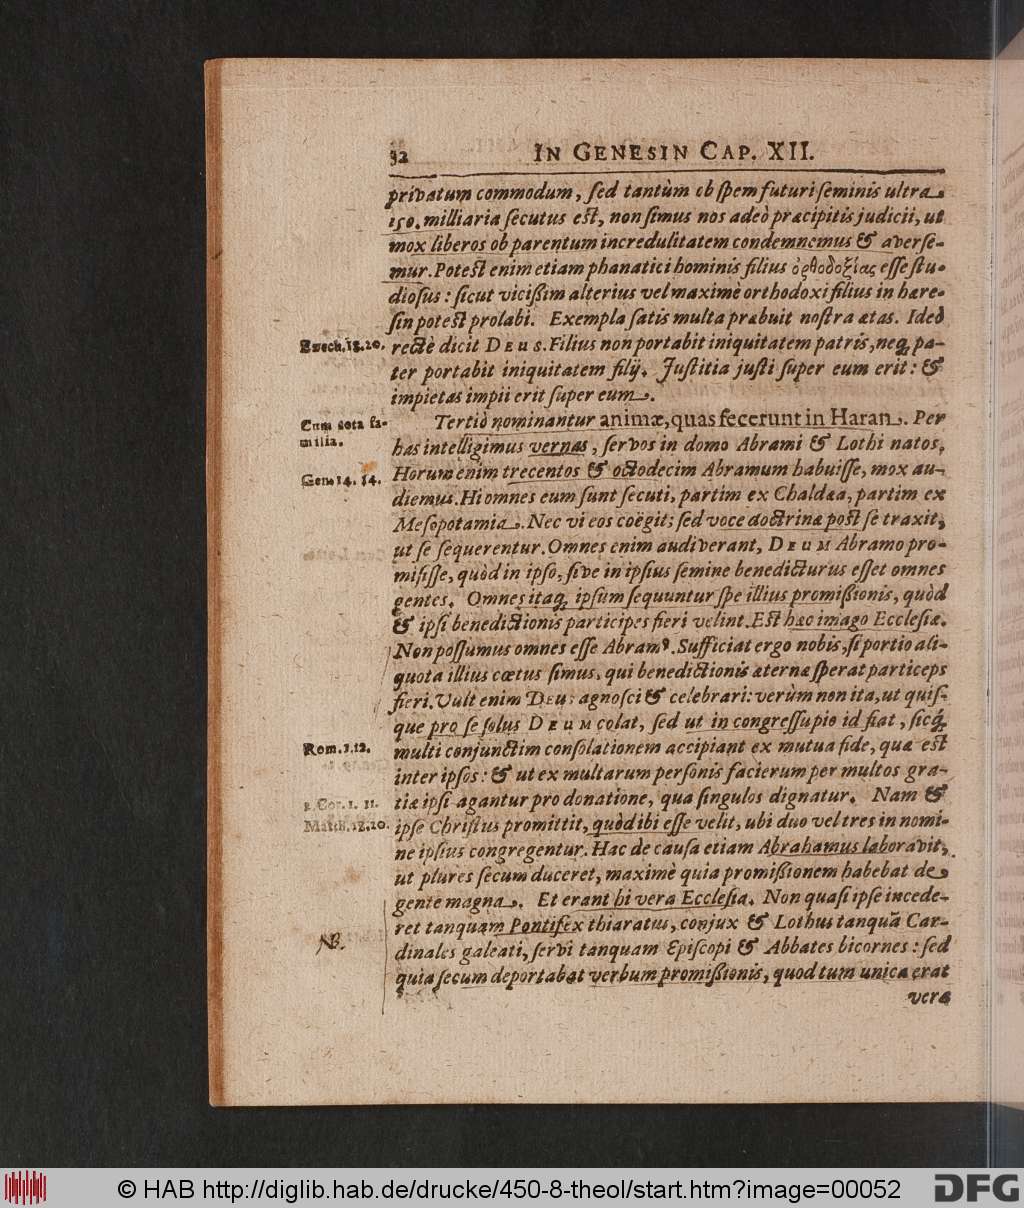 32 IN GENESIN CAP. XII.
privatum commodum, sed tantùm ob spem futuri seminis ultra
150. milliaria secutus est, non simus nos adeò præcipitis judicii, ut
mox liberos ob parentum incredulitatem condemnemus & averse-
mur. Potest enim etiam phanatici hominis filius ὀρθοδοξίας esse stu-
diosus: sicut vicißim alterius vel maximè orthodoxi filius in hære-
sin potest prolabi. Exempla satis multa præbuit nostra ætas. Ideò
Ezech. 18. 20.
rectè dicit DEUS. Filius non portabit iniquitatem patris, neq; pa-
ter portabit iniquitatem filij. Justitia justi super eum erit: &
impietas impii erit super eum.
Cum tota fa-
milia.
Tertiò nominantur animæ, quas fecerunt in Haran. Per
has intelligimus vernas, servos in domo Abrami & Lothi natos.
Gen. 14. 14.
Horum enim trecentos & octodecim Abramum habuisse, mox au-
diemus. Hi omnes eum sunt secuti, partim ex Chaldæa, partim ex
Mesopotamia. Nec vi eos coëgit; sed voce doctrinæ post se traxit,
ut se sequerentur. Omnes enim audiverant, DEUM Abramo pro-
misisse, quòd in ipso, sive in ipsius semine benedicturus esset omnes
gentes. Omnes itaq; ipsum sequuntur spe illius promißionis, quòd
& ipsi benedictionis participes fieri velint. Est hæc imago Ecclesiæ.
Non possumus omnes esse Abramꝰ. Sufficiat ergo nobis, si portio ali-
quota illius cœtus simus, qui benedictionis æternæ sperat particeps
fieri. Vult enim DEUS agnosci & celebrari: verùm non ita, ut quis-
que pro se solus DEUM colat, sed ut in congressu pio id fiat, sicq́;
Rom. 1. 12.
multi conjunctim consolationem accipiant ex mutua fide, quæ est
inter ipsos: & ut ex multarum personis facierum per multos gra-
2. Cor. 1. 11.
tiæ ipsi agantur pro donatione, qua singulos dignatur. Nam &
Matth. 18. 20.
ipse Christus promittit, quòd ibi esse velit, ubi duo vel tres in nomi-
ne ipsius congregentur. Hac de causa etiam Abrahamus laboravit,
ut plures secum duceret, maximè quia promißionem habebat de
gente magna. Et erant hi vera Ecclesia. Non quasi ipse incede-
ret tanquam Pontifex thiaratus, conjux & Lothus tanquã Car-
NB.
dinales galeati, servi tanquam Episcopi & Abbates bicornes: sed
quia secum deportabat verbum promißionis, quod tum unica erat
vera
© HAB http://diglib.hab.de/drucke/450-8-theol/start.htm?image=00052
DFG